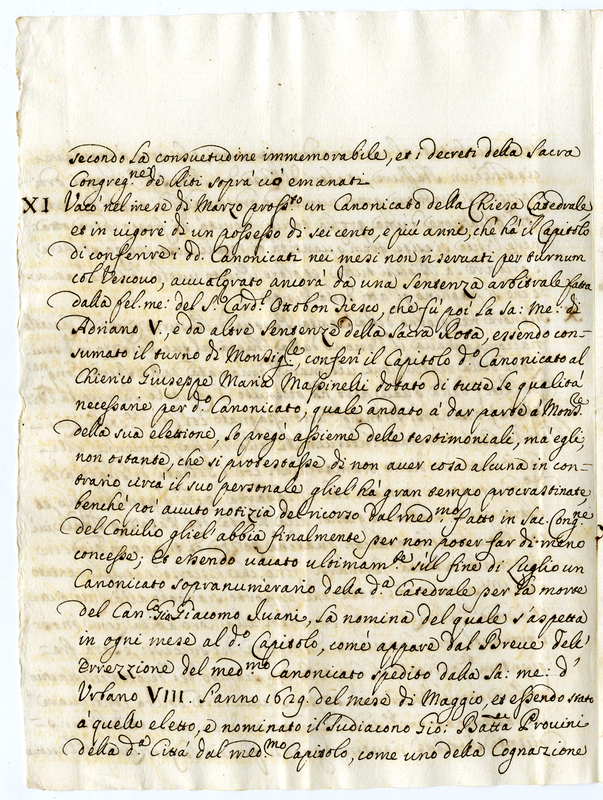 secondo la consuetudine immemorabile, et i decreti della Sacra
Congreg.ne de Riti soprà ciò emanati
XI Vacò nel mese di Marzo pross.to un Canonicato della Chiesa Catedrale
et in vigore di un possesso di seicento, e più anni, che hà il Capitolo
di conferire i dd. Canonicati nei mesi non riservati per turnum
col Vescovo, avvalorato ancorà da una Sentenza arbitrale fatta
dalla fel: me: del S.r Card.l Ottobon Fiesco, che fù poi la Sa: Me: di
Adriano V., e da altre Sentenze della Sacra Rota, essendo con-
sumato il turno di Monsig.re, conferì il Capitolo d.o Canonicato al
Chierico Giuseppe Maria Massinelli dotato di tutte le qualità
necessarie per d.o Canonicato, quale andato à dar parte à Mons.re
della sua elettione, lo pregò assieme delle testimoniali, mà egli,
non ostante, che si protestasse di non aver cosa alcuna in con-
trario circà il suo personale gliel'hà gran tempo procrastinate
benché poi avuto notizia del ricorso dal med.mo fatto in Sac. Cong.ne
del Concilio gliel'abbia finalmente per non poter far di meno
concesse; Et essendo vacato ultimam.te sul fine di Luglio un
Canonicato sopranumerario della d.a Catedrale per la morte
del Can.co Gio Giacomo Ivani, la nomina del quale s'aspetta
in ogni mese al d.o Capitolo, comé appare dal Breve dell'
Errezzione del med.mo Canonicato spedito dalla Sa: me: d'
Urbano VIII. l'anno 1629. del mese di Maggio, et essendo stato
à quello eletto, e nominato il Sudiacono Gio: Batta Provini
della d.a Città dal med.mo Capitolo, come uno della Cognazione